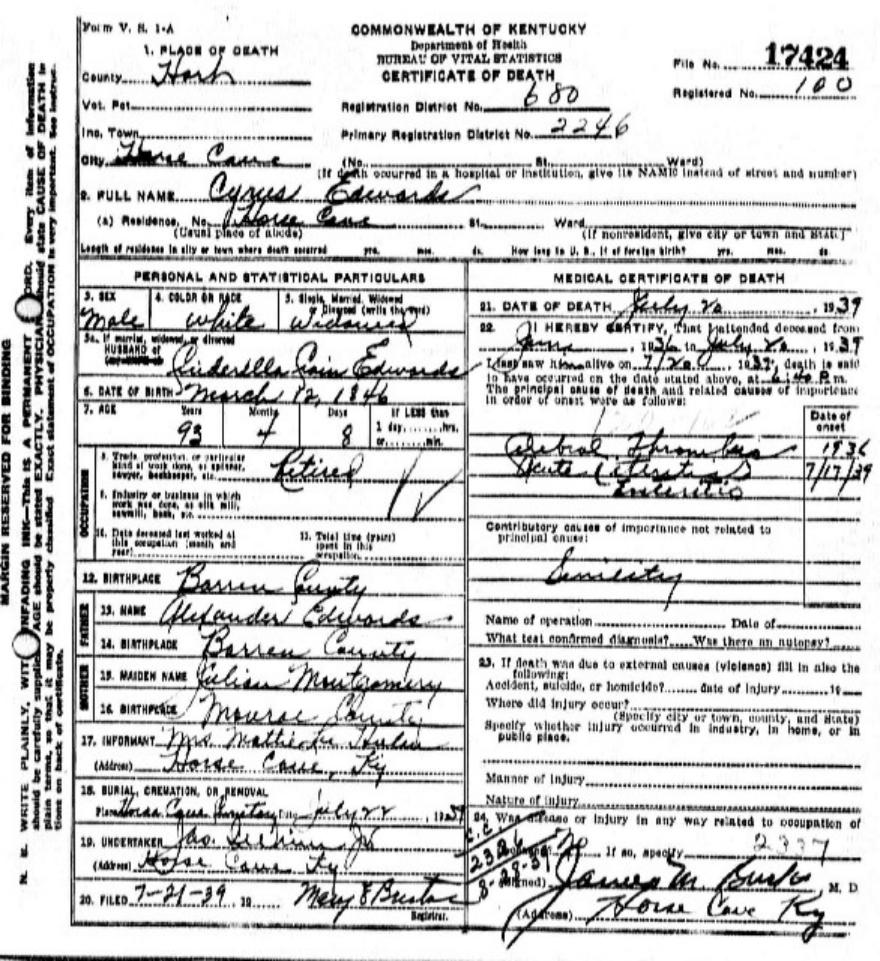 Form V. S. 1-A
COMMONWEALTH OF KENTUCKY
Department of Health
BUREAU OF VITAL STATISTICS
CERTIFICATE OF DEATH
File No. 17424
Registered No. 100
1. PLACE OF DEATH
County Hart
Vot. Pct.
Inc. Town
City Horse Cave
Registration District No. 680
Primary Registration District No. 2246
(No. St. Ward)
(If death occurred in a hospital or institution, give its NAME instead of street and number)
2. FULL NAME Cyrus Edwards
(a) Residence, No. Horse Cave St. Ward
(Usual place of abode) (If nonresident, give city or town and State)
Length of residence in city or town where death occurred yrs. mos. ds. How long in U. S., if of foreign birth? yrs. mos. ds.
PERSONAL AND STATISTICAL PARTICULARS
3. SEX 4. COLOR OR RACE 5. Single, Married, Widowed
or Divorced (write the word)
Male White Widowed
5a. If married, widowed, or divorced
HUSBAND of
Cinderella Cain Edwards
6. DATE OF BIRTH March 12, 1846
7. AGE Years Months Days If LESS than
1 day, hrs.
or min.
93 4 8
OCCUPATION
8. Trade, profession, or particular
kind of work done, as spinner,
sawyer, bookkeeper, etc. Retired
9. Industry or business in which
work was done, as silk mill,
sawmill, bank, etc.
10. Date deceased last worked at
this occupation (month and
year)
11. Total time (years)
spent in this
occupation
12. BIRTHPLACE Barren County
FATHER
13. NAME Alexander Edwards
14. BIRTHPLACE Barren County
MOTHER
15. MAIDEN NAME Montgomery
16. BIRTHPLACE Monroe County
17. INFORMANT Mrs Mattie
(Address) Horse Cave, Ky
18. BURIAL, CREMATION, OR REMOVAL
Place Horse Cave Cemetery July 22, 1939
19. UNDERTAKER Jas.
(Address) Horse Cave Ky
20. FILED 7-21-39, 19 Mary E Bustos
Registrar.
MEDICAL CERTIFICATE OF DEATH
21. DATE OF DEATH July 20, 1939
22. I HEREBY CERTIFY, That I attended deceased from
1936 to July 20, 1939
I last saw him alive on 7/20 1939, death is said
to have occurred on the date stated above, at 6:40 P. m.
The principal cause of death and related causes of importance
in order of onset were as follows:
Date of
onset
Cerebral Thrombosis 1936
Acute 7/17/39
Enteritis
Contributory causes of importance not related to
principal cause:
Senility
Name of operation Date of
What test confirmed diagnosis? Was there an autopsy?
23. If death was due to external causes (violence) fill in also the
following:
Accident, suicide, or homicide? date of injury 19
Where did injury occur?
(Specify city or town, county, and State)
Specify whether injury occurred in industry, in home, or in
public place.
Manner of injury
Nature of injury
24. Was disease or injury in any way related to occupation of
deceased? No If so, specify 2337
C.C.
2326
8-28-39
(Signed) James M. Bustos, M. D.
(Address) Horse Cave Ky
MARGIN RESERVED FOR BINDING
N. B. WRITE PLAINLY, WITH UNFADING INK—This is a PERMANENT RECORD. Every item of information
should be carefully supplied. AGE should be stated EXACTLY. PHYSICIANS should state CAUSE OF DEATH in
plain terms, so that it may be properly classified. Exact statement of OCCUPATION is very important. See instruc-
tions on back of certificate.